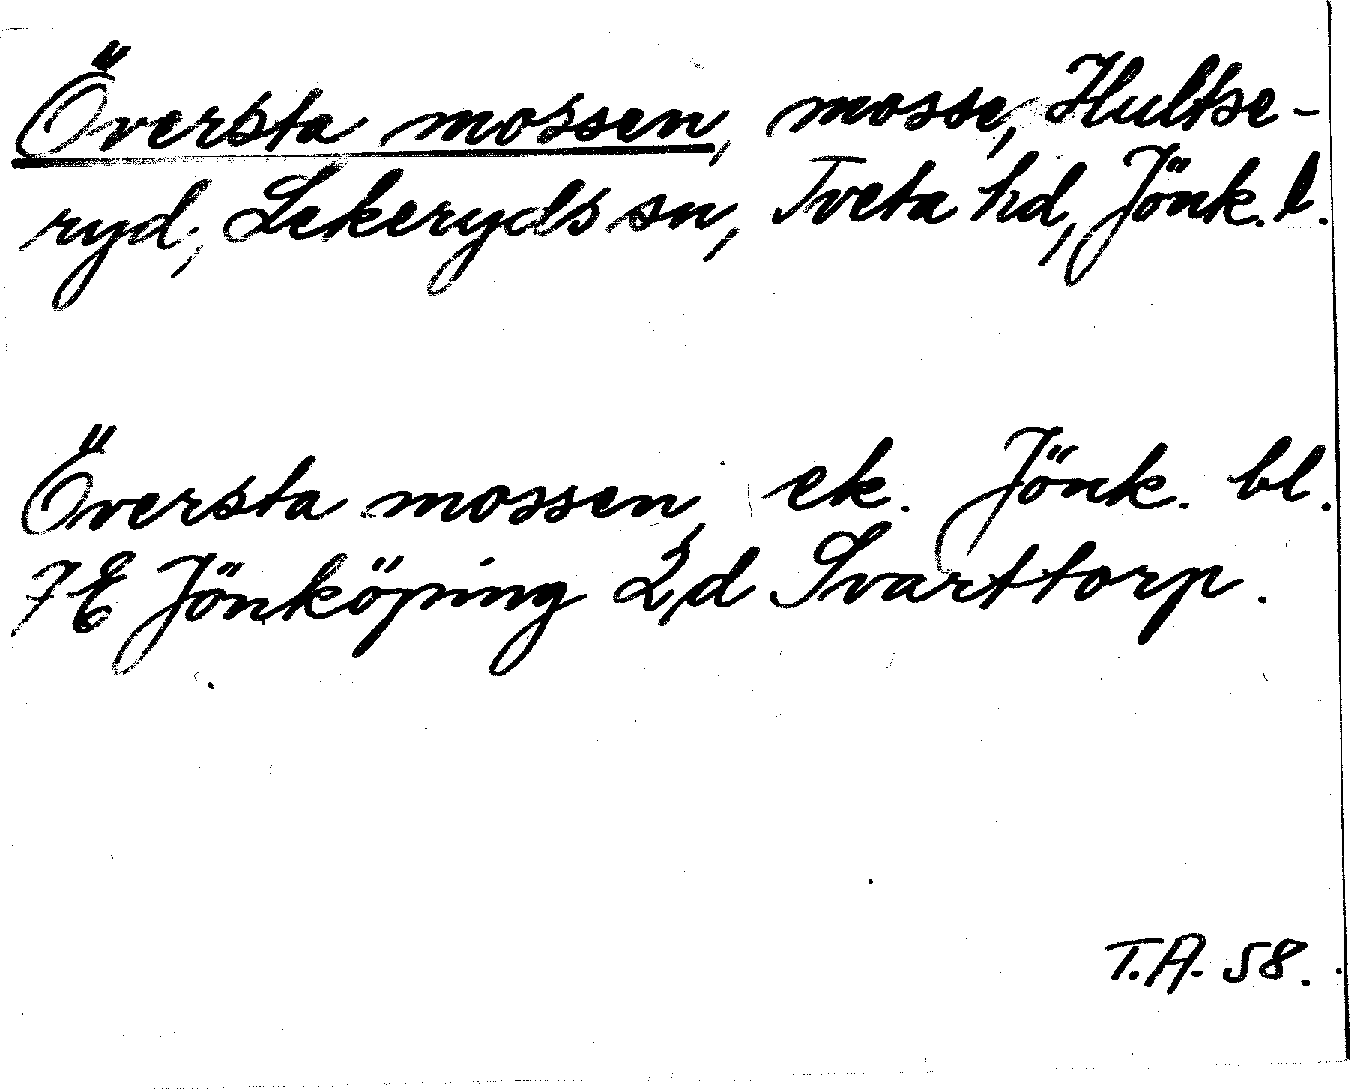 Översta mossen, mosse, Hultse-
ryd, Lekeryds sn, Tveta hd, Jönk. l.
Översta mossen, ek. Jönk. bl.
7E Jönköping 2d Svarttorp.
T.A. 58.